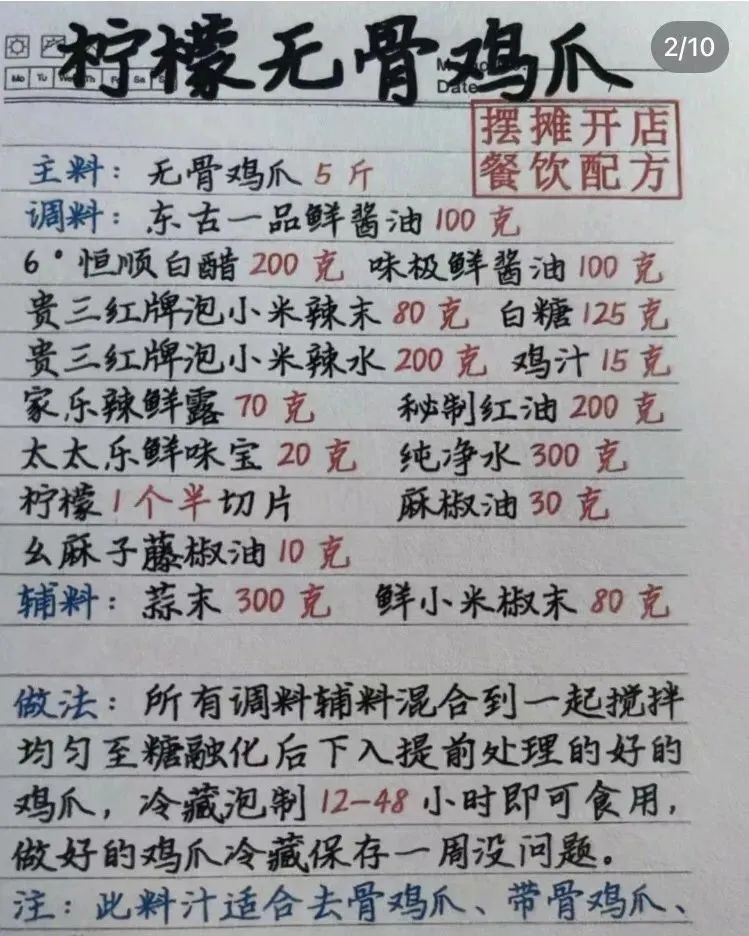 柠檬无骨鸡爪
2/10
Mo Tu We Th Fr Sa
Date
摆摊开店
餐饮配方
主料：无骨鸡爪 5 斤
调料：东古一品鲜酱油 100 克
6°恒顺白醋 200 克 味极鲜酱油 100 克
贵三红牌泡小米辣末 80 克 白糖 125 克
贵三红牌泡小米辣水 200 克 鸡汁 15 克
家乐辣鲜露 70 克 秘制红油 200 克
太太乐鲜味宝 20 克 纯净水 300 克
柠檬 1 个半切片 麻椒油 30 克
幺麻子藤椒油 10 克
辅料：蒜末 300 克 鲜小米椒末 80 克
做法：所有调料辅料混合到一起搅拌
均匀至糖融化后下入提前处理的好的
鸡爪，冷藏泡制 12-48 小时即可食用，
做好的鸡爪冷藏保存一周没问题。
注：此料汁适合去骨鸡爪、带骨鸡爪、